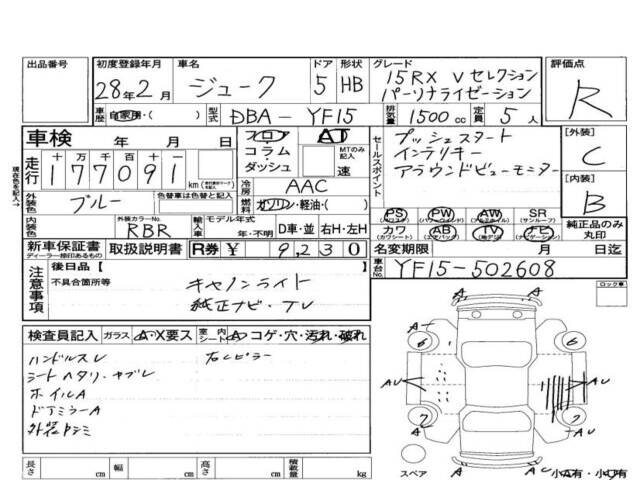 出品番号 初度登録年月 車名 ドア 形状 グレード 評価点
28年2月 ジューク 5 HB 15RX Vセレクション
パーソナライゼーション R
車歴 自家用・( ) 型式 DBA-YF15 排気量 1500cc 定員 5人
車検 年 月 日 フロア AT セールスポイント プッシュスタート [外装]
コラム MTのみ記入 インテリキー C
走行 十万千百十一 ダッシュ 速 アラウンドビューモニター
177091 km 冷房 AAC [内装]
外装色 ブルー 色替車は色替と記入 燃料 ガソリン・軽油・( ) B
PS PW AW SR
(パワステ) (パワーウインド) (アルミホイル) (サンルーフ)
内装色 外装カラーNo. RBR 輸入車 モデル年式 年・不明 D車・並 右H・左H カワ AB TV ナビ 純正品のみ丸印
(本革シート) (エアバッグ) (地デジ) (ナビゲーション)
新車保証書 取扱説明書 R券 ¥ 9,230 名変期限 月 日迄
ディーラー捺印あるもの
注意事項 後日品【 】 車台No. YF15-502608
不具合箇所等 キャノンライト ロック車
純正ナビ・TV
検査員記入 ガラス A・X要ス 室内シート A・コゲ・穴・汚れ・破れ
ハンドルスレ 右Lピラー
シートヘタリ・ヤブレ
ホイルA
ドアミラーA
外装キズ
A A
6 6
AU AU AU
7 7
A A
A A A
スペア 小A有・小U有
長さ cm 幅 cm 高さ cm 積載量 kg
現在色を記入→